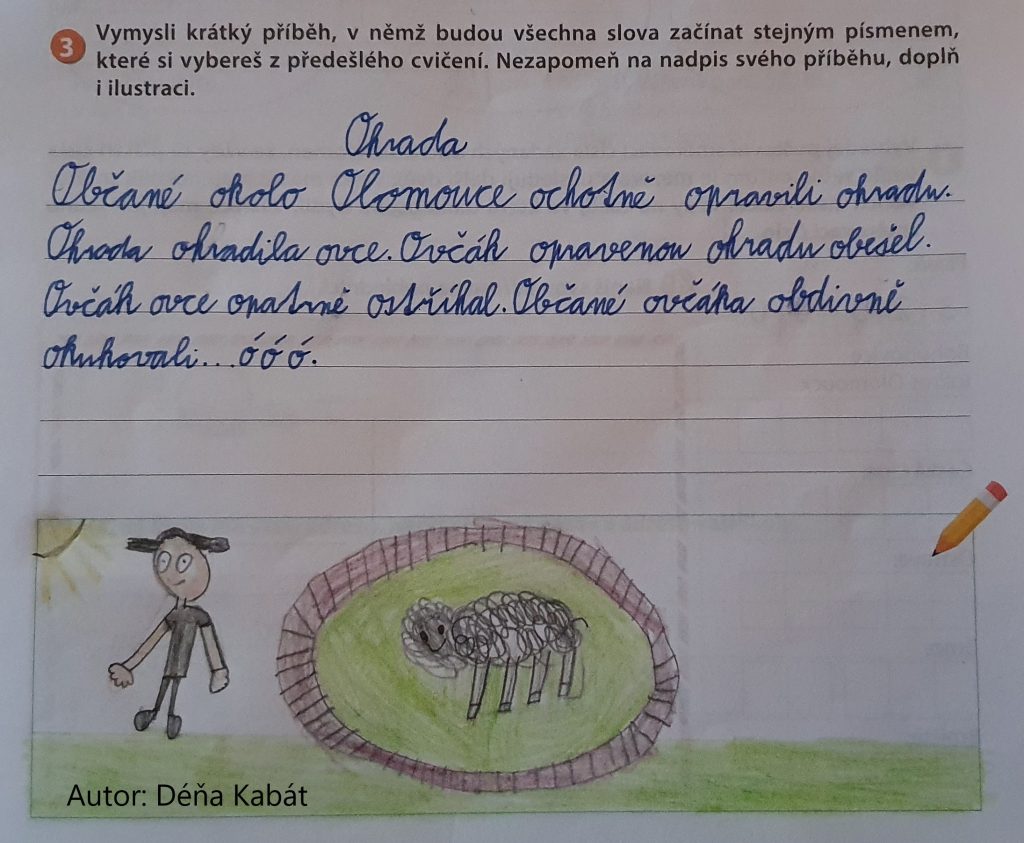 3 Vymysli krátký příběh, v němž budou všechna slova začínat stejným písmenem,
které si vybereš z předešlého cvičení. Nezapomeň na nadpis svého příběhu, doplň
i ilustraci.
Ohrada
Občané okolo Olomouce ochotně opravili ohradu.
Ohrada ohradila ovce. Ovčák opravenou ohradu obešel.
Ovčák ovce opatrně ostříhal. Občané ovčáka obdivně
okukovali...óóó.
Autor: Déňa Kabát